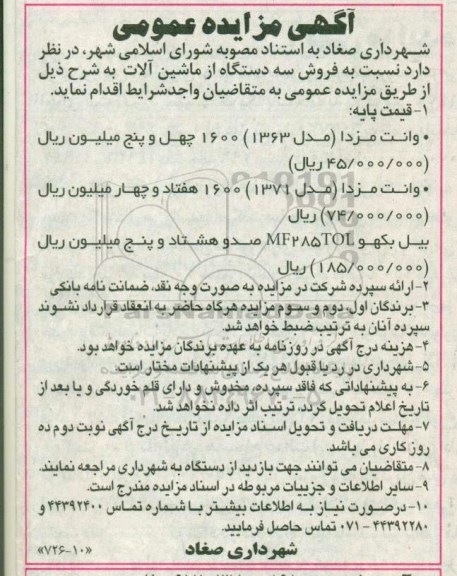 آگهی مزایده عمومی
شهرداری صغاد به استناد مصوبه شورای اسلامی شهر، در نظر
دارد نسبت به فروش سه دستگاه از ماشین آلات به شرح ذیل
از طریق مزایده عمومی به متقاضیان واجدشرایط اقدام نماید.
۱-قیمت پایه:
• وانت مزدا (مدل ۱۳۶۳) ۱۶۰۰ چهل و پنج میلیون ریال
(۴۵/۰۰۰/۰۰۰ ریال)
• وانت مزدا (مدل ۱۳۷۱) ۱۶۰۰ هفتاد و چهار میلیون ریال
(۷۴/۰۰۰/۰۰۰) ریال
بیل بکهو MF۲۸۵TOL صدو هشتاد و پنج میلیون ریال
(۱۸۵/۰۰۰/۰۰۰) ریال
۲-ارائه سپرده شرکت در مزایده به صورت وجه نقد، ضمانت نامه بانکی
۳-برندگان اول، دوم و سوم مزایده هرگاه حاضر به انعقاد قرارداد نشوند
سپرده آنان به ترتیب ضبط خواهد شد.
۴-هزینه درج آگهی در روزنامه به عهده برندگان مزایده خواهد بود.
۵-شهرداری در رد یا قبول هر یک از پیشنهادات مختار است.
۶-به پیشنهاداتی که فاقد سپرده، مخدوش و دارای قلم خوردگی و یا بعد از
تاریخ اعلام تحویل گردد، ترتیب اثر داده نخواهد شد.
۷-مهلت دریافت و تحویل اسناد مزایده از تاریخ درج آگهی نوبت دوم ده
روز کاری می باشد.
۸-متقاضیان می توانند جهت بازدید از دستگاه به شهرداری مراجعه نمایند.
۹-سایر اطلاعات و جزییات مربوطه در اسناد مزایده مندرج است.
۱۰-درصورت نیاز به اطلاعات بیشتر با شماره تماس ۴۴۳۹۲۴۰۰ و
۴۴۳۹۲۲۸۰ -۰۷۱ تماس حاصل فرمایید.
شهرداری صغاد
«۷۲۶-۱۰»